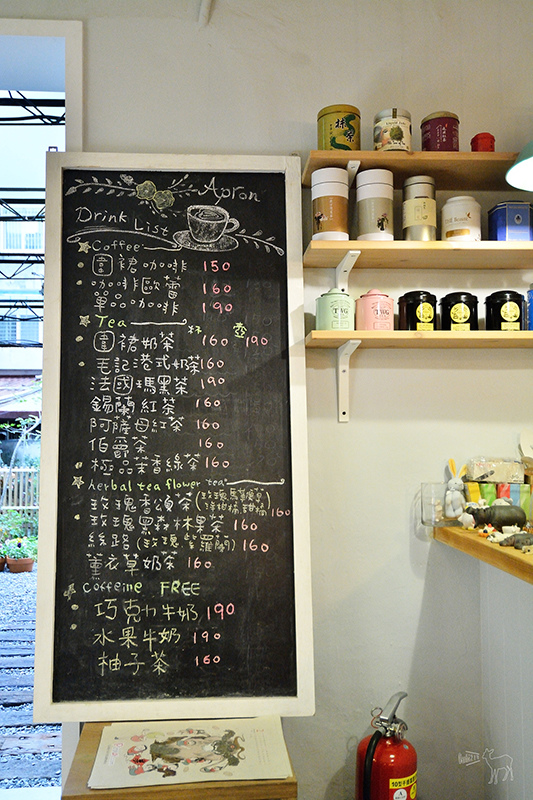 Apron
Drink List
Coffee
圍裙咖啡 150
咖啡歐蕾 160
單品咖啡 190
Tea 杯 壺
圍裙奶茶 160 190
毛記港式奶茶 160
法國瑪黑茶 190
錫蘭紅茶 160
阿薩母紅茶 160
伯爵茶 160
極品茉香綠茶 160
herbal tea flower tea
玫瑰香頌茶 160
玫瑰黑森林果茶 160
絲路(玫瑰 紫羅蘭) 160
薰衣草奶茶 160
coffeine FREE
巧克力牛奶 190
水果牛奶 190
柚子茶 160
TWG
TWG
10型